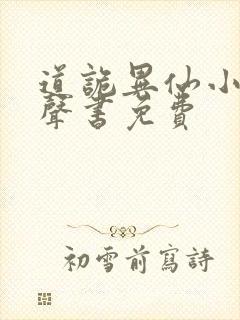 道詭異仙小
聲書免費
初雪前寫詩